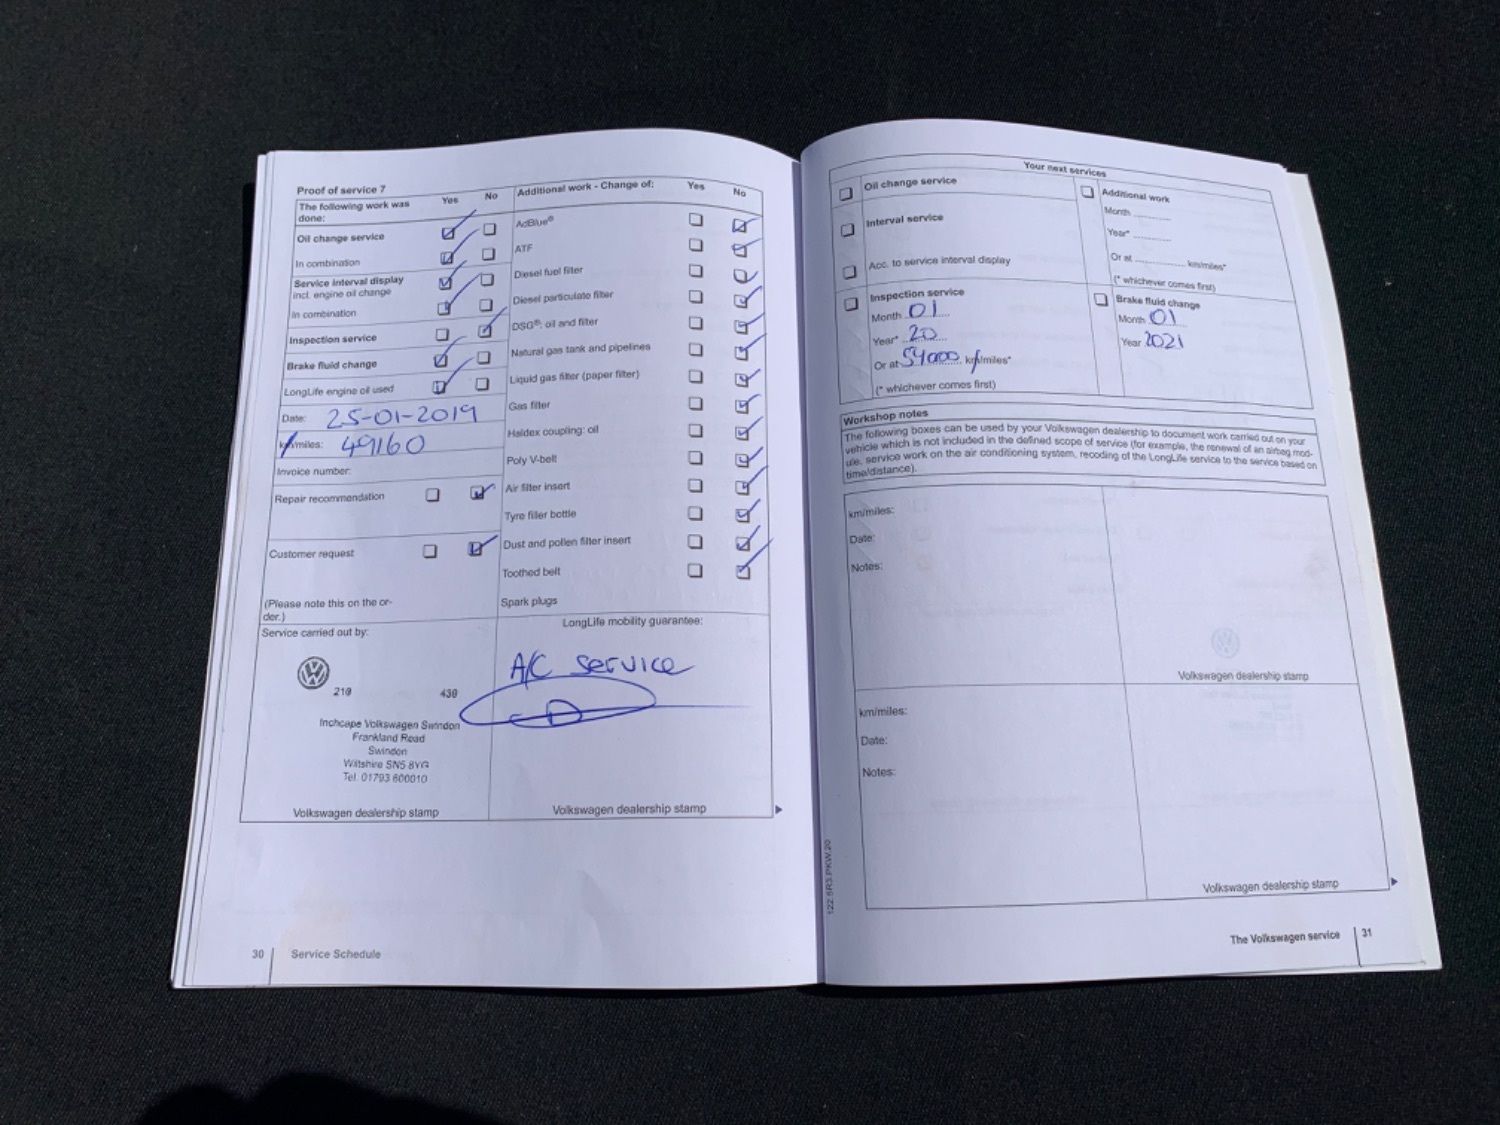 Proof of service 7
The following work was done:
Yes No
Oil change service
In combination
Service interval display
incl. engine oil change
In combination
Inspection service
Brake fluid change
LongLife engine oil used
Date: 25-01-2019
km/miles: 49160
Invoice number:
Repair recommendation
Customer request
(Please note this on the or-
der.)
Service carried out by:
210 430
Inchcape Volkswagen Swindon
Frankland Road
Swindon
Wiltshire SN5 8YG
Tel. 01793 600010
Volkswagen dealership stamp
Additional work - Change of: Yes No
AdBlue®
ATF
Diesel fuel filter
Diesel particulate filter
DSG®: oil and filter
Natural gas tank and pipelines
Liquid gas filter (paper filter)
Gas filter
Haldex coupling: oil
Poly V-belt
Air filter insert
Tyre filler bottle
Dust and pollen filter insert
Toothed belt
Spark plugs
LongLife mobility guarantee:
A/C service
Volkswagen dealership stamp
30 Service Schedule
Your next services
Oil change service
Interval service
Acc. to service interval display
Additional work
Month ............
Year* ............
Or at ................ km/miles*
(* whichever comes first)
Inspection service
Month 01
Year* 20
Or at 54000 km/miles*
(* whichever comes first)
Brake fluid change
Month 01
Year 2021
Workshop notes
The following boxes can be used by your Volkswagen dealership to document work carried out on your
vehicle which is not included in the defined scope of service (for example, the renewal of an airbag mod-
ule, service work on the air conditioning system, recoding of the LongLife service to the service based on
time/distance).
km/miles:
Date:
Notes:
Volkswagen dealership stamp
km/miles:
Date:
Notes:
Volkswagen dealership stamp
122.5R3.PKW.20
The Volkswagen service 31